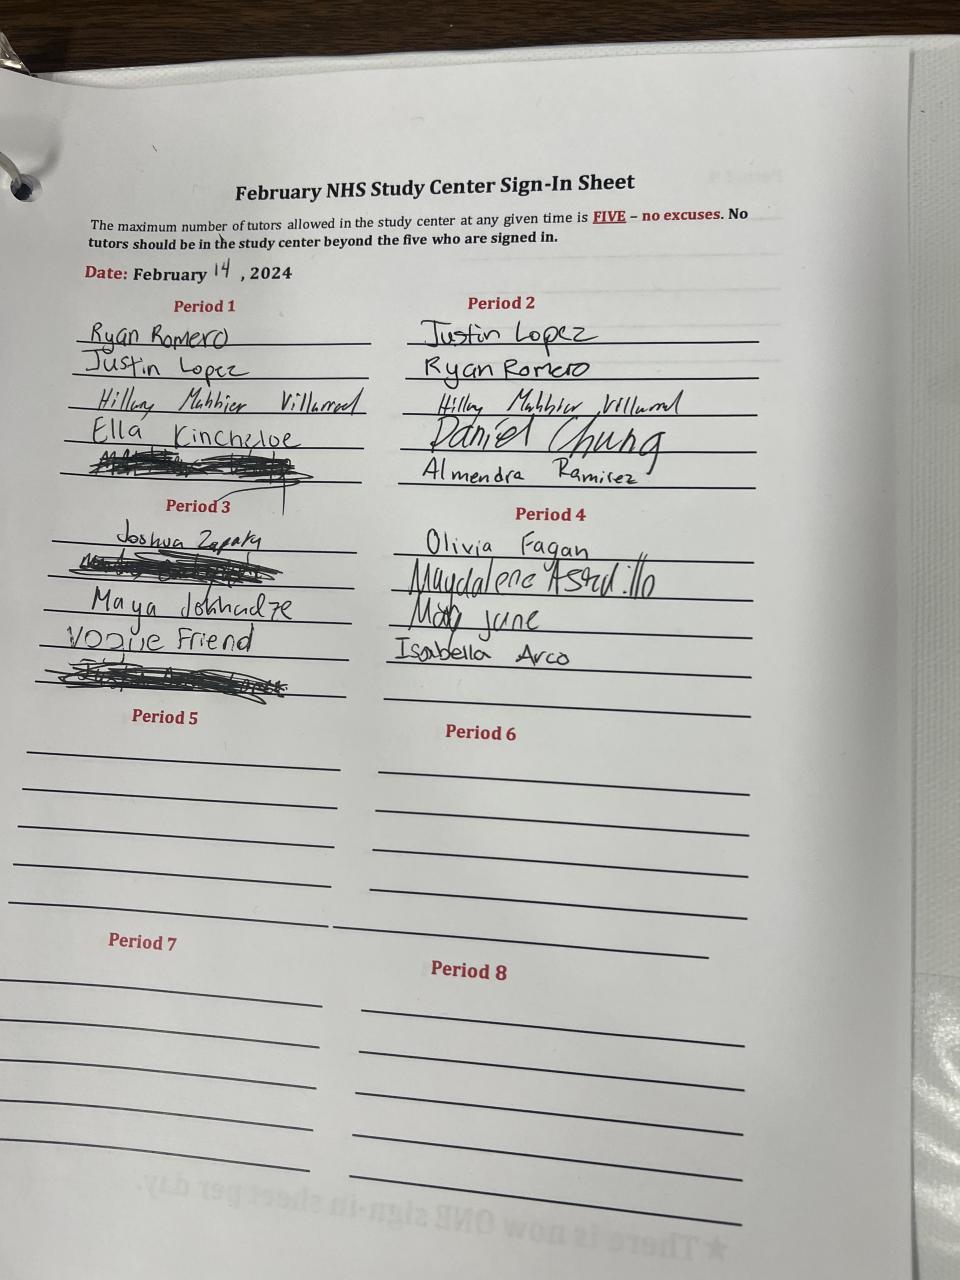 February NHS Study Center Sign-In Sheet
The maximum number of tutors allowed in the study center at any given time is FIVE – no excuses. No
tutors should be in the study center beyond the five who are signed in.
Date: February 14, 2024
Period 1
Ryan Romero
Justin Lopez
Hillary Villarreal
Ella Kincheloe
Period 2
Justin Lopez
Ryan Romero
Daniel Chung
Almendra Ramirez
Period 3
Joshua Zapata
Maya
Vogue Friend
Period 4
Olivia Fagan
Magdalene
June
Isabella Arco
Period 5
Period 6
Period 7
Period 8
★There is now ONE sign-in sheet per day.